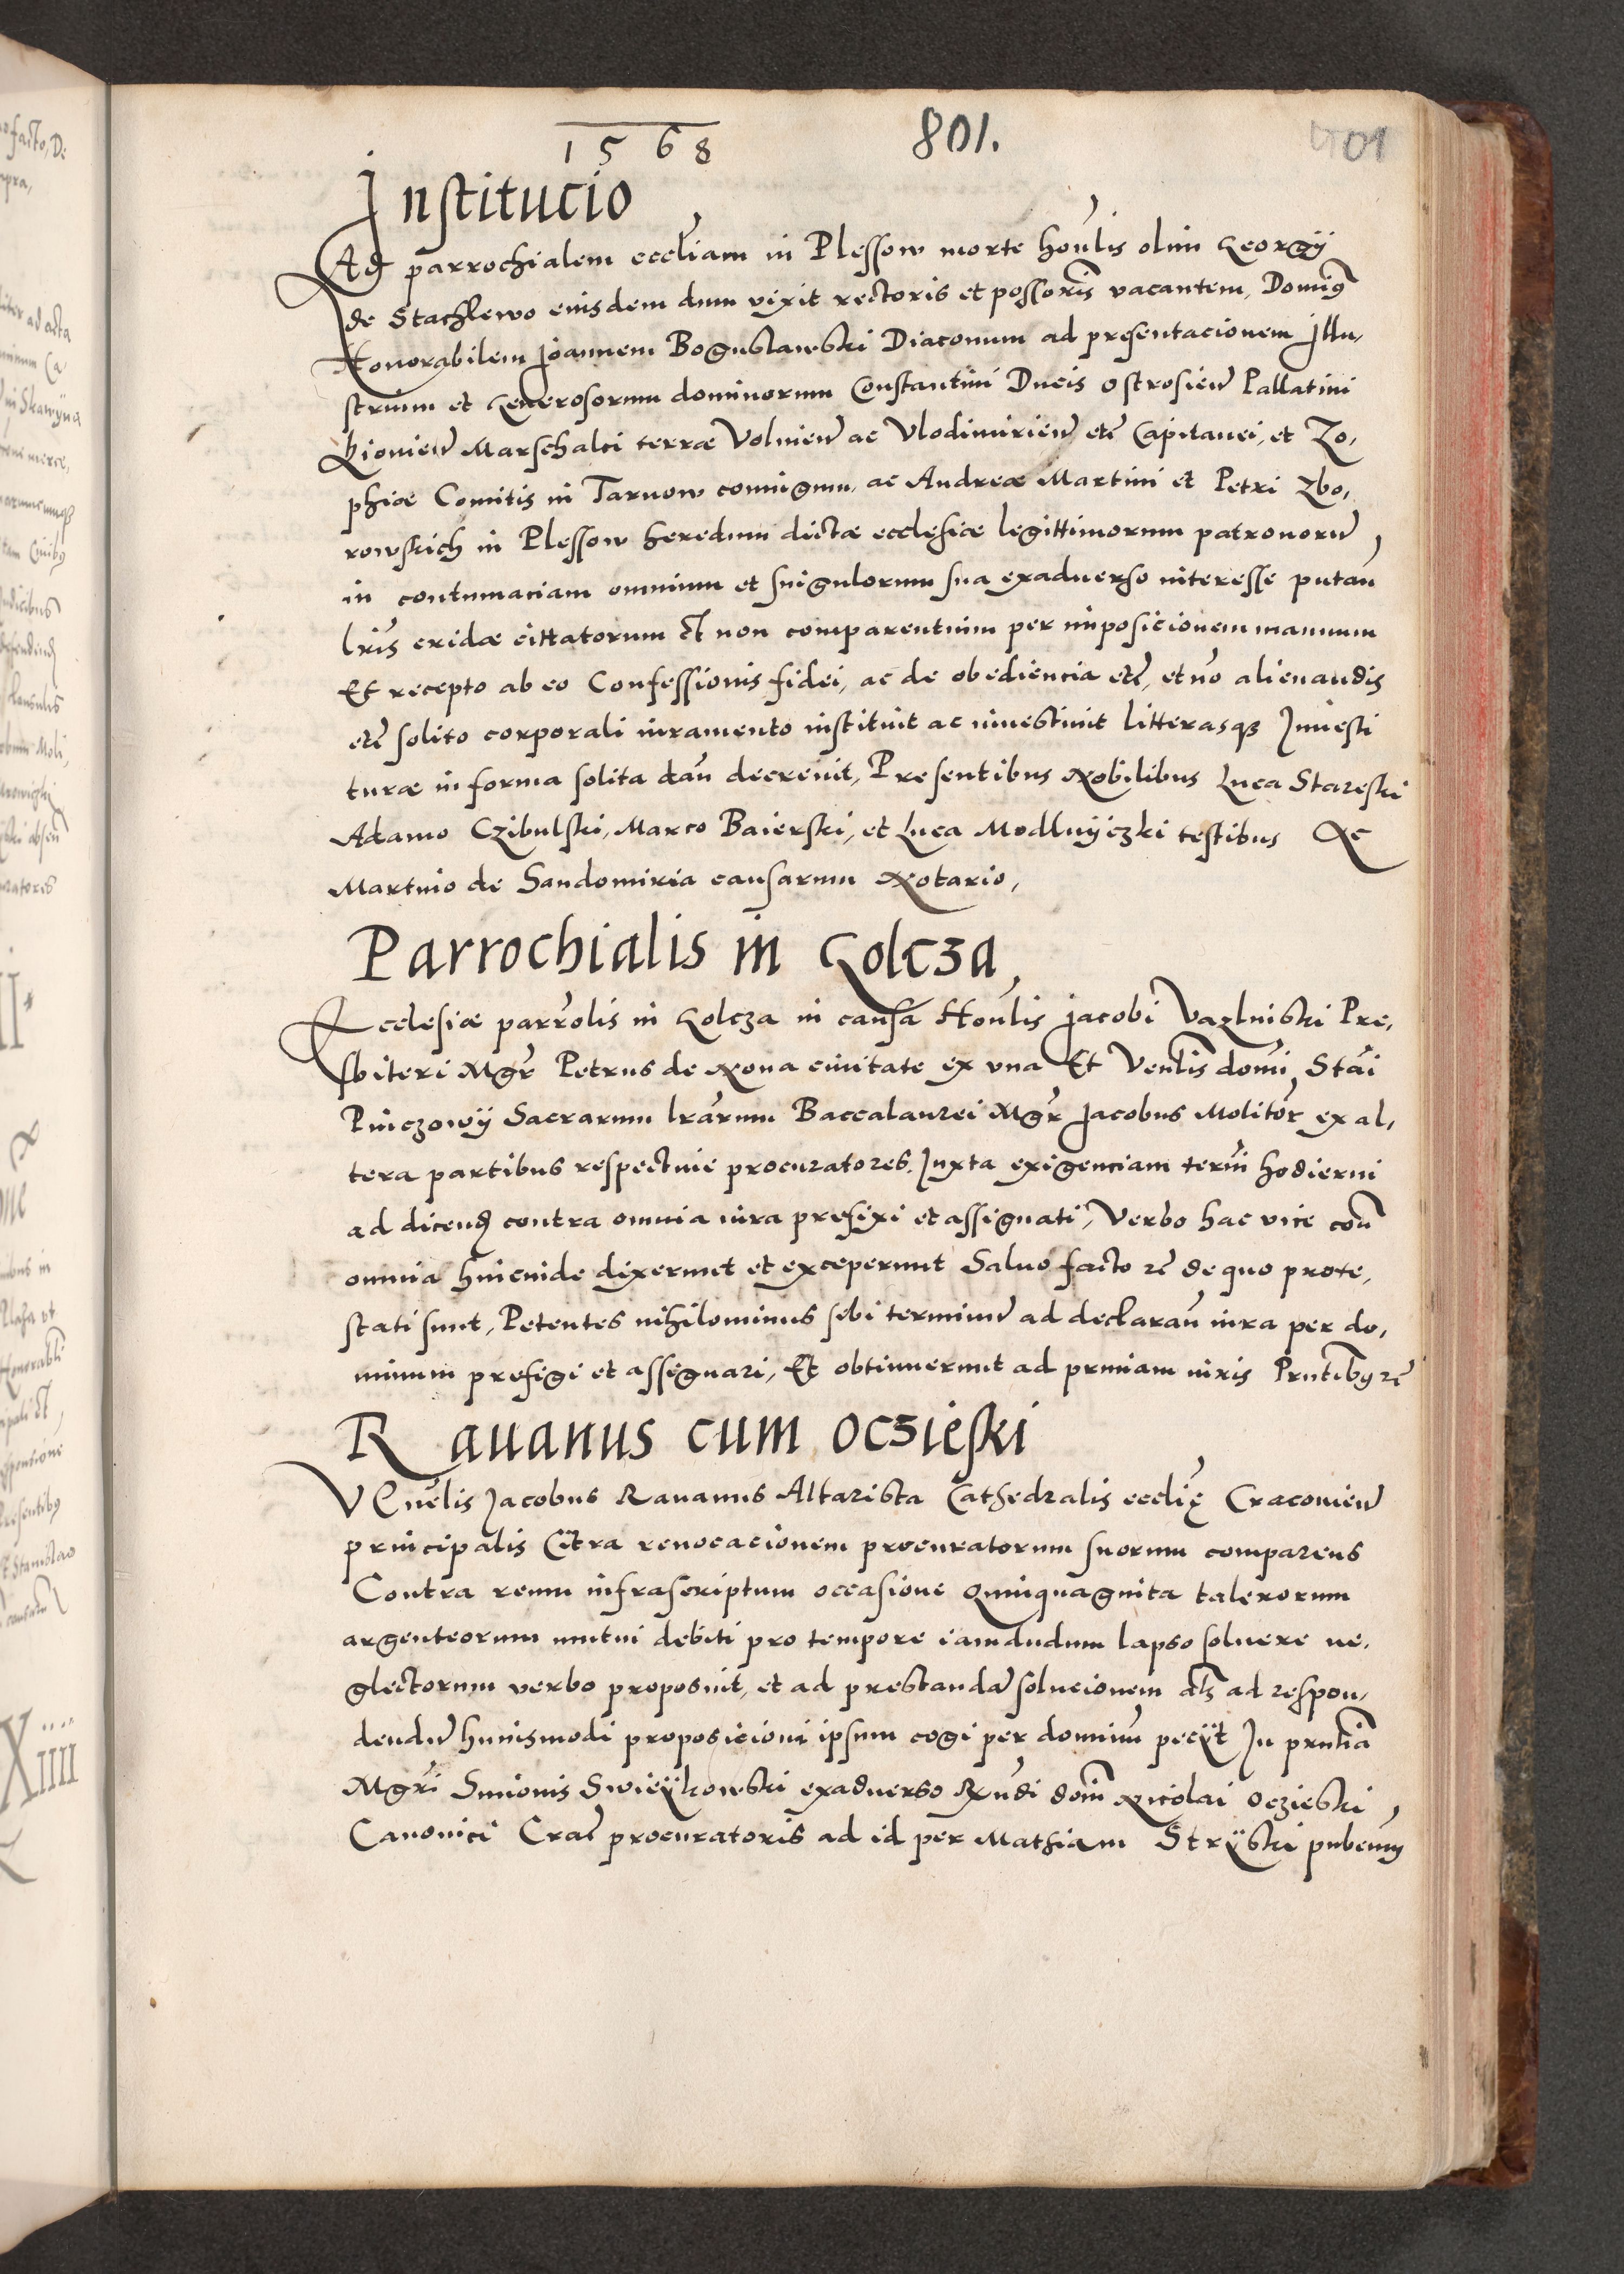 1568
801.
Institucio
Ad parrochialem eccliam in Plessow morte honlis olim Georgij
de Stachlewo eiusdem dum vixit rectoris et possoris vacantem, Dominus
Honorabilem Joannem Boguslawski Diaconum ad presentacionem Illu,
strium et Generosorum dominorum Constantini Ducis Ostrosien Pallatini
Kiovien Marschalci terræ Volnien ac Vlodimirien etc Capitanei, et Zo,
phiæ Comitis in Tarnow coniugum, ac Andreæ Martini et Petri Zbo,
rowskich in Plessow heredum dictæ ecclesiæ legittimorum patronorum,
in contumaciam omnium et singulorum sua exadverso interesse putan
lris cridæ cittatorum et non comparentium per imposicionem manuum
Et recepto ab eo Confessionis fidei, ac de obediencia etc, et no alienandis
etc solito corporali iuramento instituit ac investivit litterasque Investi
turæ in forma solita dan decrevit, Presentibus Nobilibus Luca Stareski
Adamo Czibulski, Marco Baierski, et Luca Modlnijczki testibus Ac
Martino de Sandomiria causarum Notario,
Parrochialis in Golcza
Ecclesiæ parrolis in Golcza in causa Honlis Jacobi Vazlniski Pre,
sbiteri Mgr Petrus de Nova civitate ex una Et Venlis domi Stai
Pinczowij Sacrarum lrarum Baccalaurei Mgr Jacobus Molitor ex al,
tera partibus respective procuratores. Iuxta exigenciam termi hodierni
ad dicend contra omnia iura prefixi et assignati, Verbo hac vice con
omnia hincinde dixerunt et exceperunt Salvo facto etc de quo prote,
stati sunt, Petentes nihilominus sibi terminum ad declaran iura per do,
minum prefigi et assignari, Et obtinuerunt ad primam iuris Pntibus etc
Ravanus cum Oczieski
VEnelis Jacobus Ravanus Altarista Cathedralis ecclie Cracovien
principalis Citra revocacionem procuratorum suorum comparens
Contra reum infrascriptum occasione quinquaginta talerorum
argenteorum mutui debiti pro tempore iamdudum lapso solvere ne,
glectorum verbo proposuit, et ad prestandam solucionem als ad respon,
dendum huiusmodi proposicioni ipsum cogi per dominum pecijt In pntia
Mgri Simonis Swieijkowski exadverso Rndi domi Nicolai Oczieski,
Canonici Crac procuratoris ad id per Mathiam Strijski